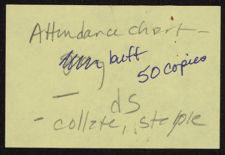 Attendance chart -
buff
50 copies
- ds
- collate, staple